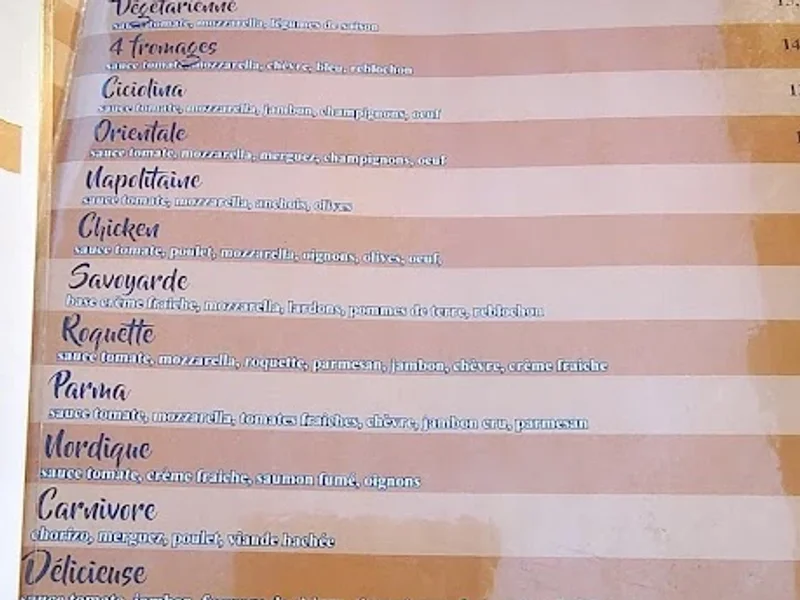 Végétarienne
sauce tomate, mozzarella, légumes de saison
4 fromages
14
sauce tomate, mozzarella, chèvre, bleu, reblochon
Ciciolina
sauce tomate, mozzarella, jambon, champignons, oeuf
Orientale
sauce tomate, mozzarella, merguez, champignons, oeuf
Napolitaine
sauce tomate, mozzarella, anchois, olives
Chicken
sauce tomate, poulet, mozzarella, oignons, olives, oeuf,
Savoyarde
base crème fraiche, mozzarella, lardons, pommes de terre, reblochon
Roquette
sauce tomate, mozzarella, roquette, parmesan, jambon, chèvre, crème fraiche
Parma
sauce tomate, mozzarella, tomates fraiches, chèvre, jambon cru, parmesan
Nordique
sauce tomate, crème fraiche, saumon fumé, oignons
Carnivore
chorizo, merguez, poulet, viande hachée
Délicieuse
sauce tomate, jambon,